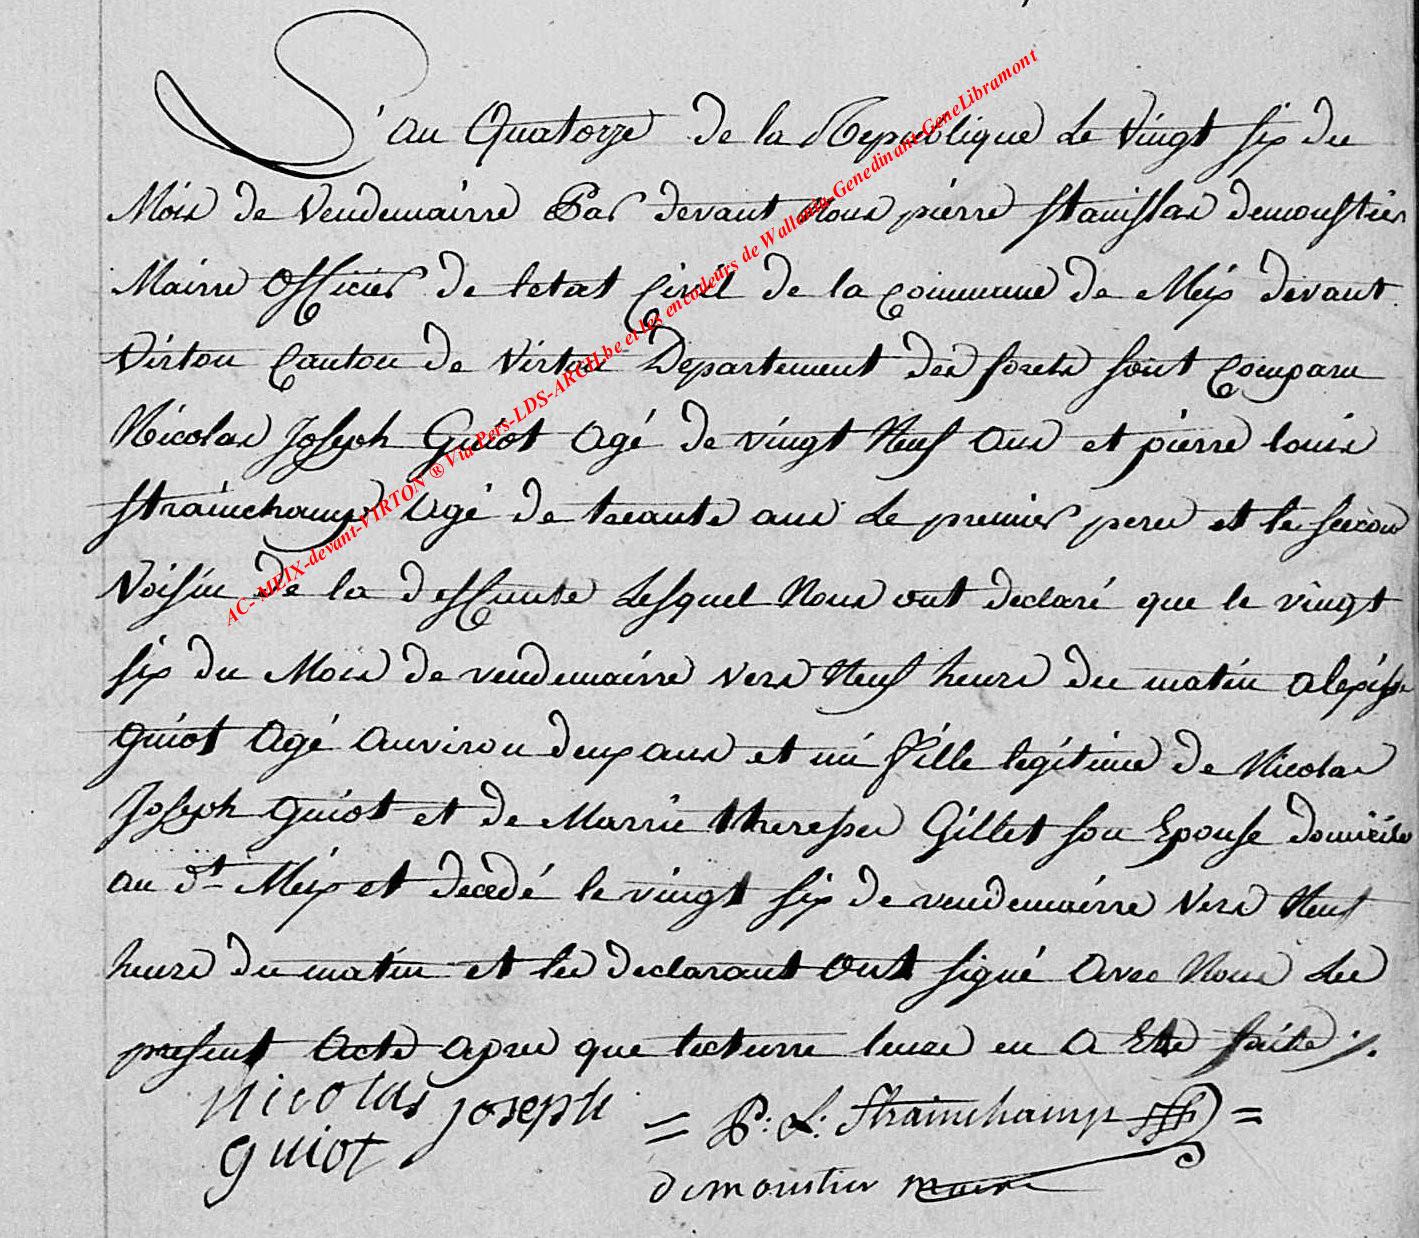 L'an Quatorze de la Republique Le vingt six du
Mois de vendemairre Par devant Nous pierre stanislas demoustier
Mairre Officier de letat Civil de la Commune de Meix devant
Virton Canton de Virton Departement des forets sont Comparu
Nicolas Joseph Guiot agé de vingt Neuf ans et pierre louis
strainchamps agé de ans Le premier pere et le secon
Voisin de la deffunte Lesquel Nous ont declaré que le vingt
six du Mois de vendemairre vers Neuf heure du matin
guiot agé anviron deux ans et mi fille legitime de Nicolas
Joseph guiot et de Marrie theresse Gillet son Epouse
au dt Meix et decedé le vingt six de vendemairre vers Neuf
heure du matin et les declarant ont signé avec Nous Le
present acte apres que lecturre leure en a Eté faite ./.
nicolas joseph
guiot
= P: L: Strainchamp =
demoustier maire
AC- MEIX-devant-VIRTON ® Via Pers-LDS-ARCH.be et les encodeurs de Wallonia-Genedinant-GeneLibramont